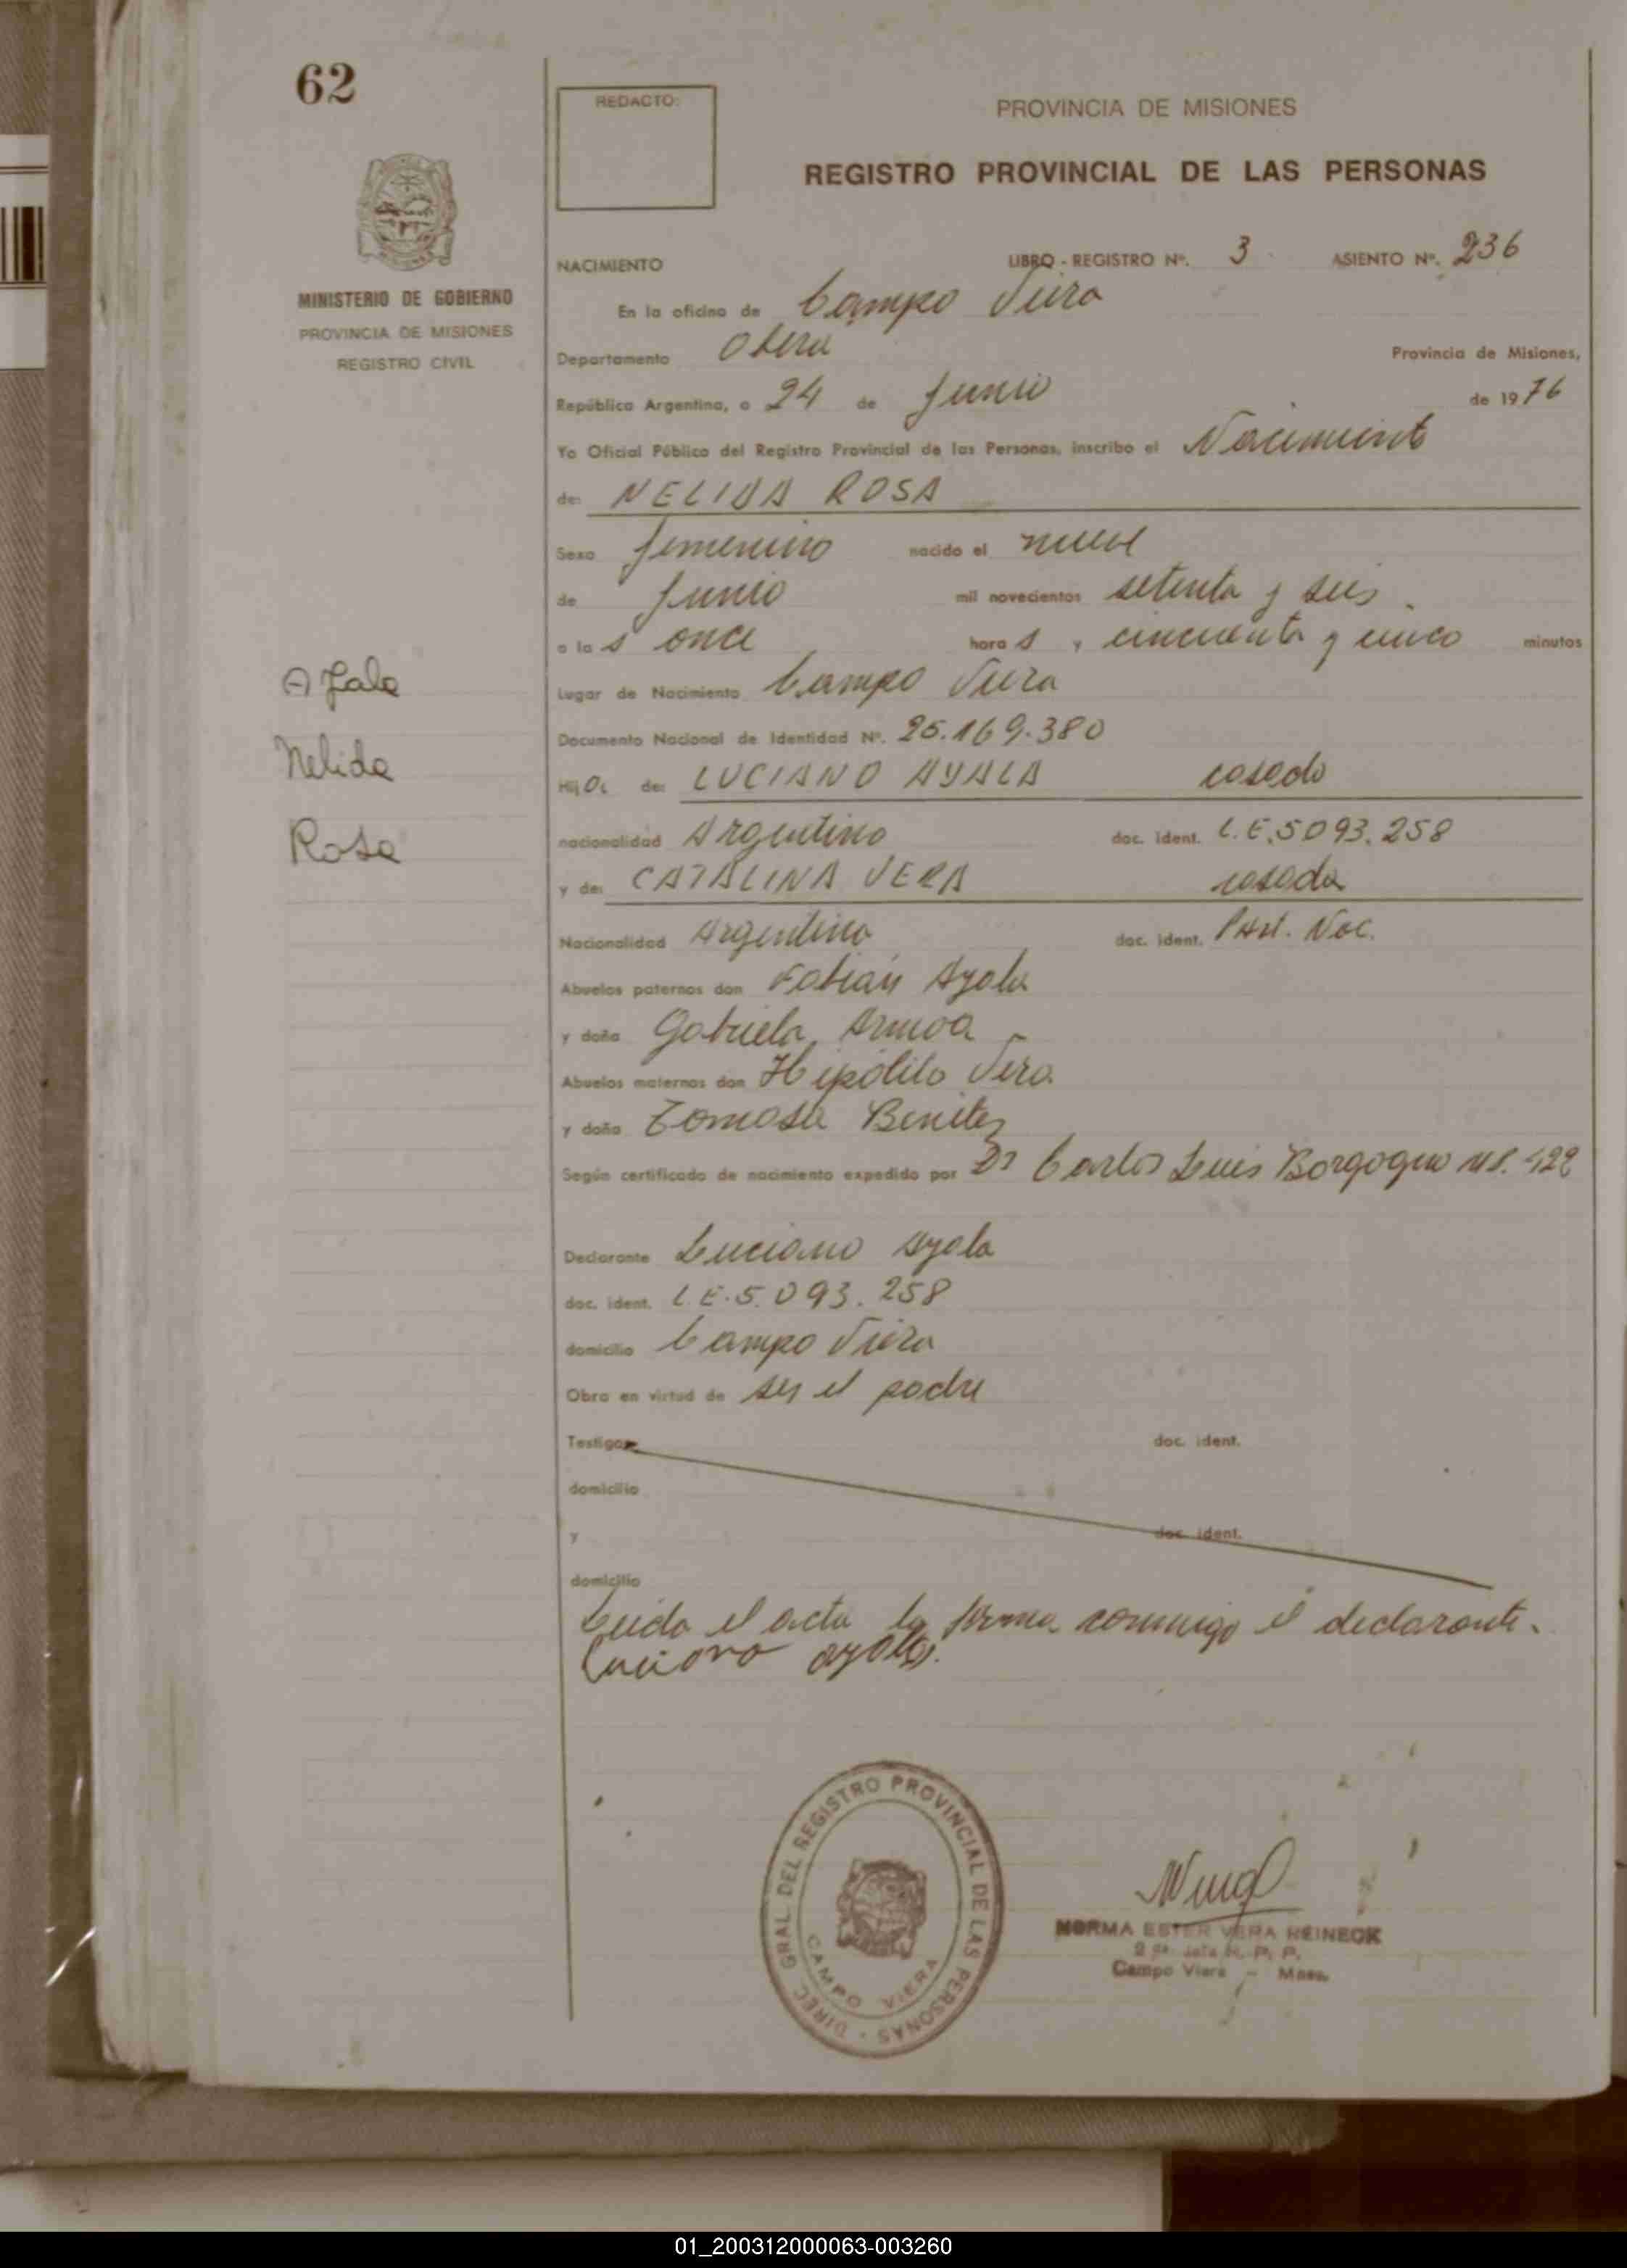 62
REDACTO:
PROVINCIA DE MISIONES
REGISTRO PROVINCIAL DE LAS PERSONAS
MINISTERIO DE GOBIERNO
PROVINCIA DE MISIONES
REGISTRO CIVIL
NACIMIENTO LIBRO - REGISTRO Nº. 3 ASIENTO Nº. 236
En la oficina de Campo Viera
Departamento Oberá Provincia de Misiones,
República Argentina, a 24 de Junio de 1976
Yo Oficial Público del Registro Provincial de las Personas, inscribo el Nacimiento
de: NELIDA ROSA
Sexo femenino nacido el nueve
de Junio mil novecientos setenta y seis.
a las once horas y cincuenta y cinco minutos
Lugar de Nacimiento Campo Viera
Documento Nacional de Identidad Nº. 25.169.380
Hija de: LUCIANO AYALA casado
nacionalidad Argentino doc. ident. L.E. 5093.258
y de: CATALINA VERA casada
Nacionalidad Argentina doc. ident. Part. Nac.
Abuelos paternos don Fabián Ayala
y doña Gabriela Armoa
Abuelos maternos don Hipólito Vera
y doña Tomasa Benitez
Según certificado de nacimiento expedido por Dr Carlos Luis Borgogno
Declarante Luciano Ayala
doc. ident. L.E. 5.093.258
domicilio Campo Viera
Obra en virtud de ser el padre
Testigos doc. ident.
domicilio
y doc. ident.
domicilio
Leida el acta la firma conmigo el declarante.
Luciano ayala.
Ayala
Nelida
Rosa
DIREC. GRAL. DEL REGISTRO PROVINCIAL DE LAS PERSONAS
CAMPO VIERA
NORMA ESTER VERA REINECK
Jefe R. P. P.
Campo Viera - Mnes.
01_200312000063-003260